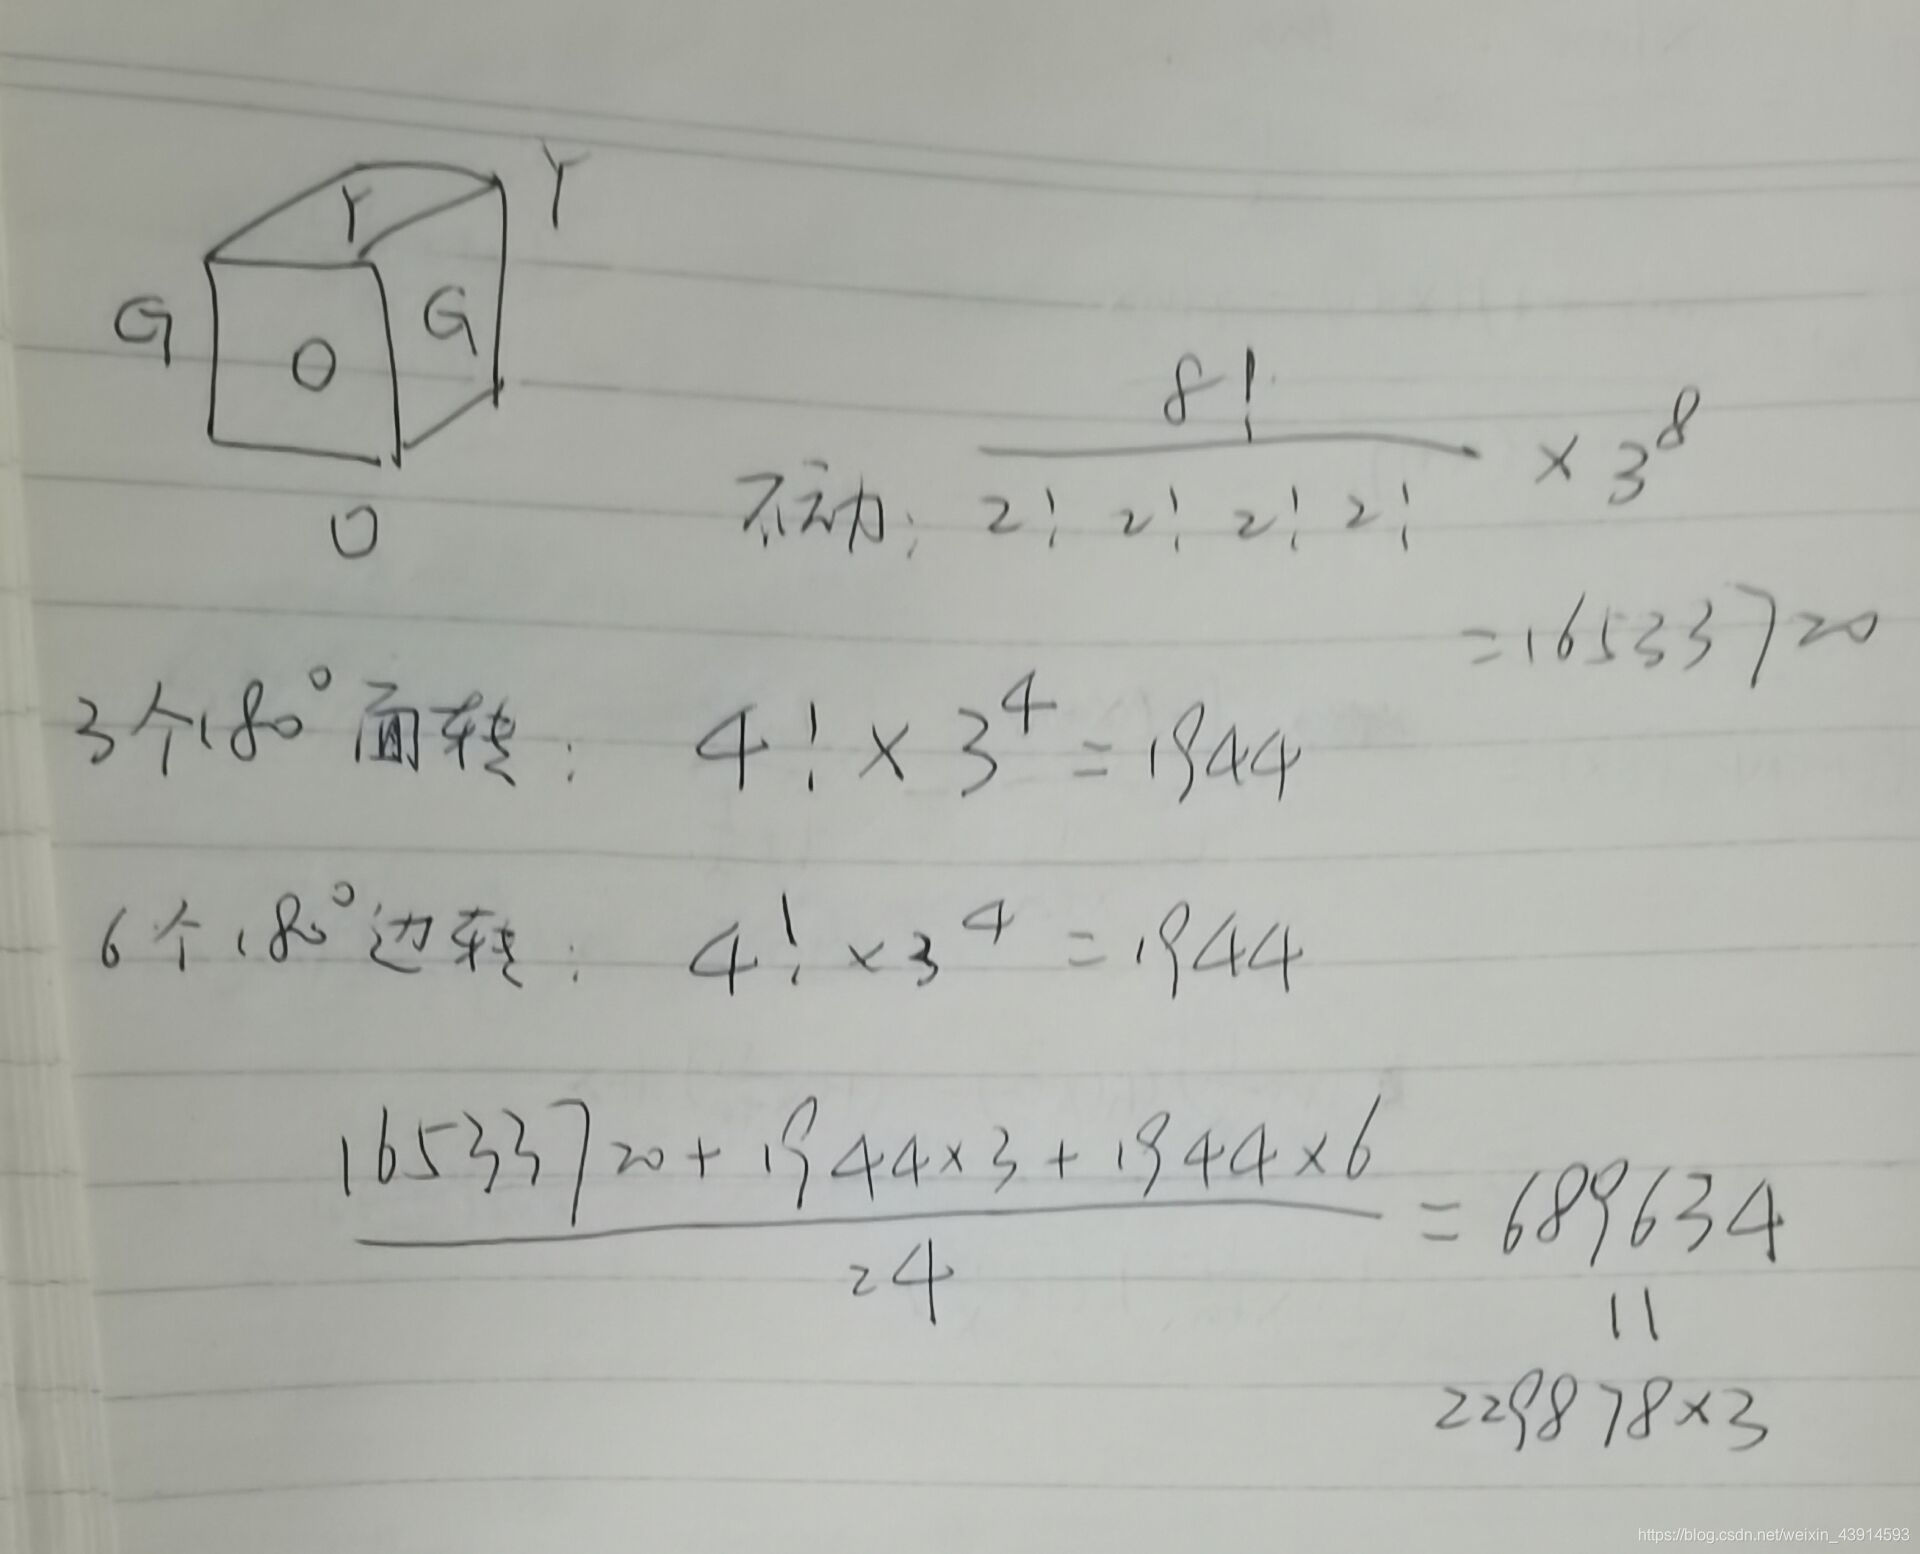 Y
Y
G
G
O
O
8!
不动: 2! 2! 2! 2! × 3^8
=16533720
3个180°面转: 4! × 3^4 = 1944
6个180°边转: 4! × 3^4 = 1944
16533720 + 1944×3 + 1944×6
24
= 689634
11
229878×3
https://blog.csdn.net/weixin_43914593